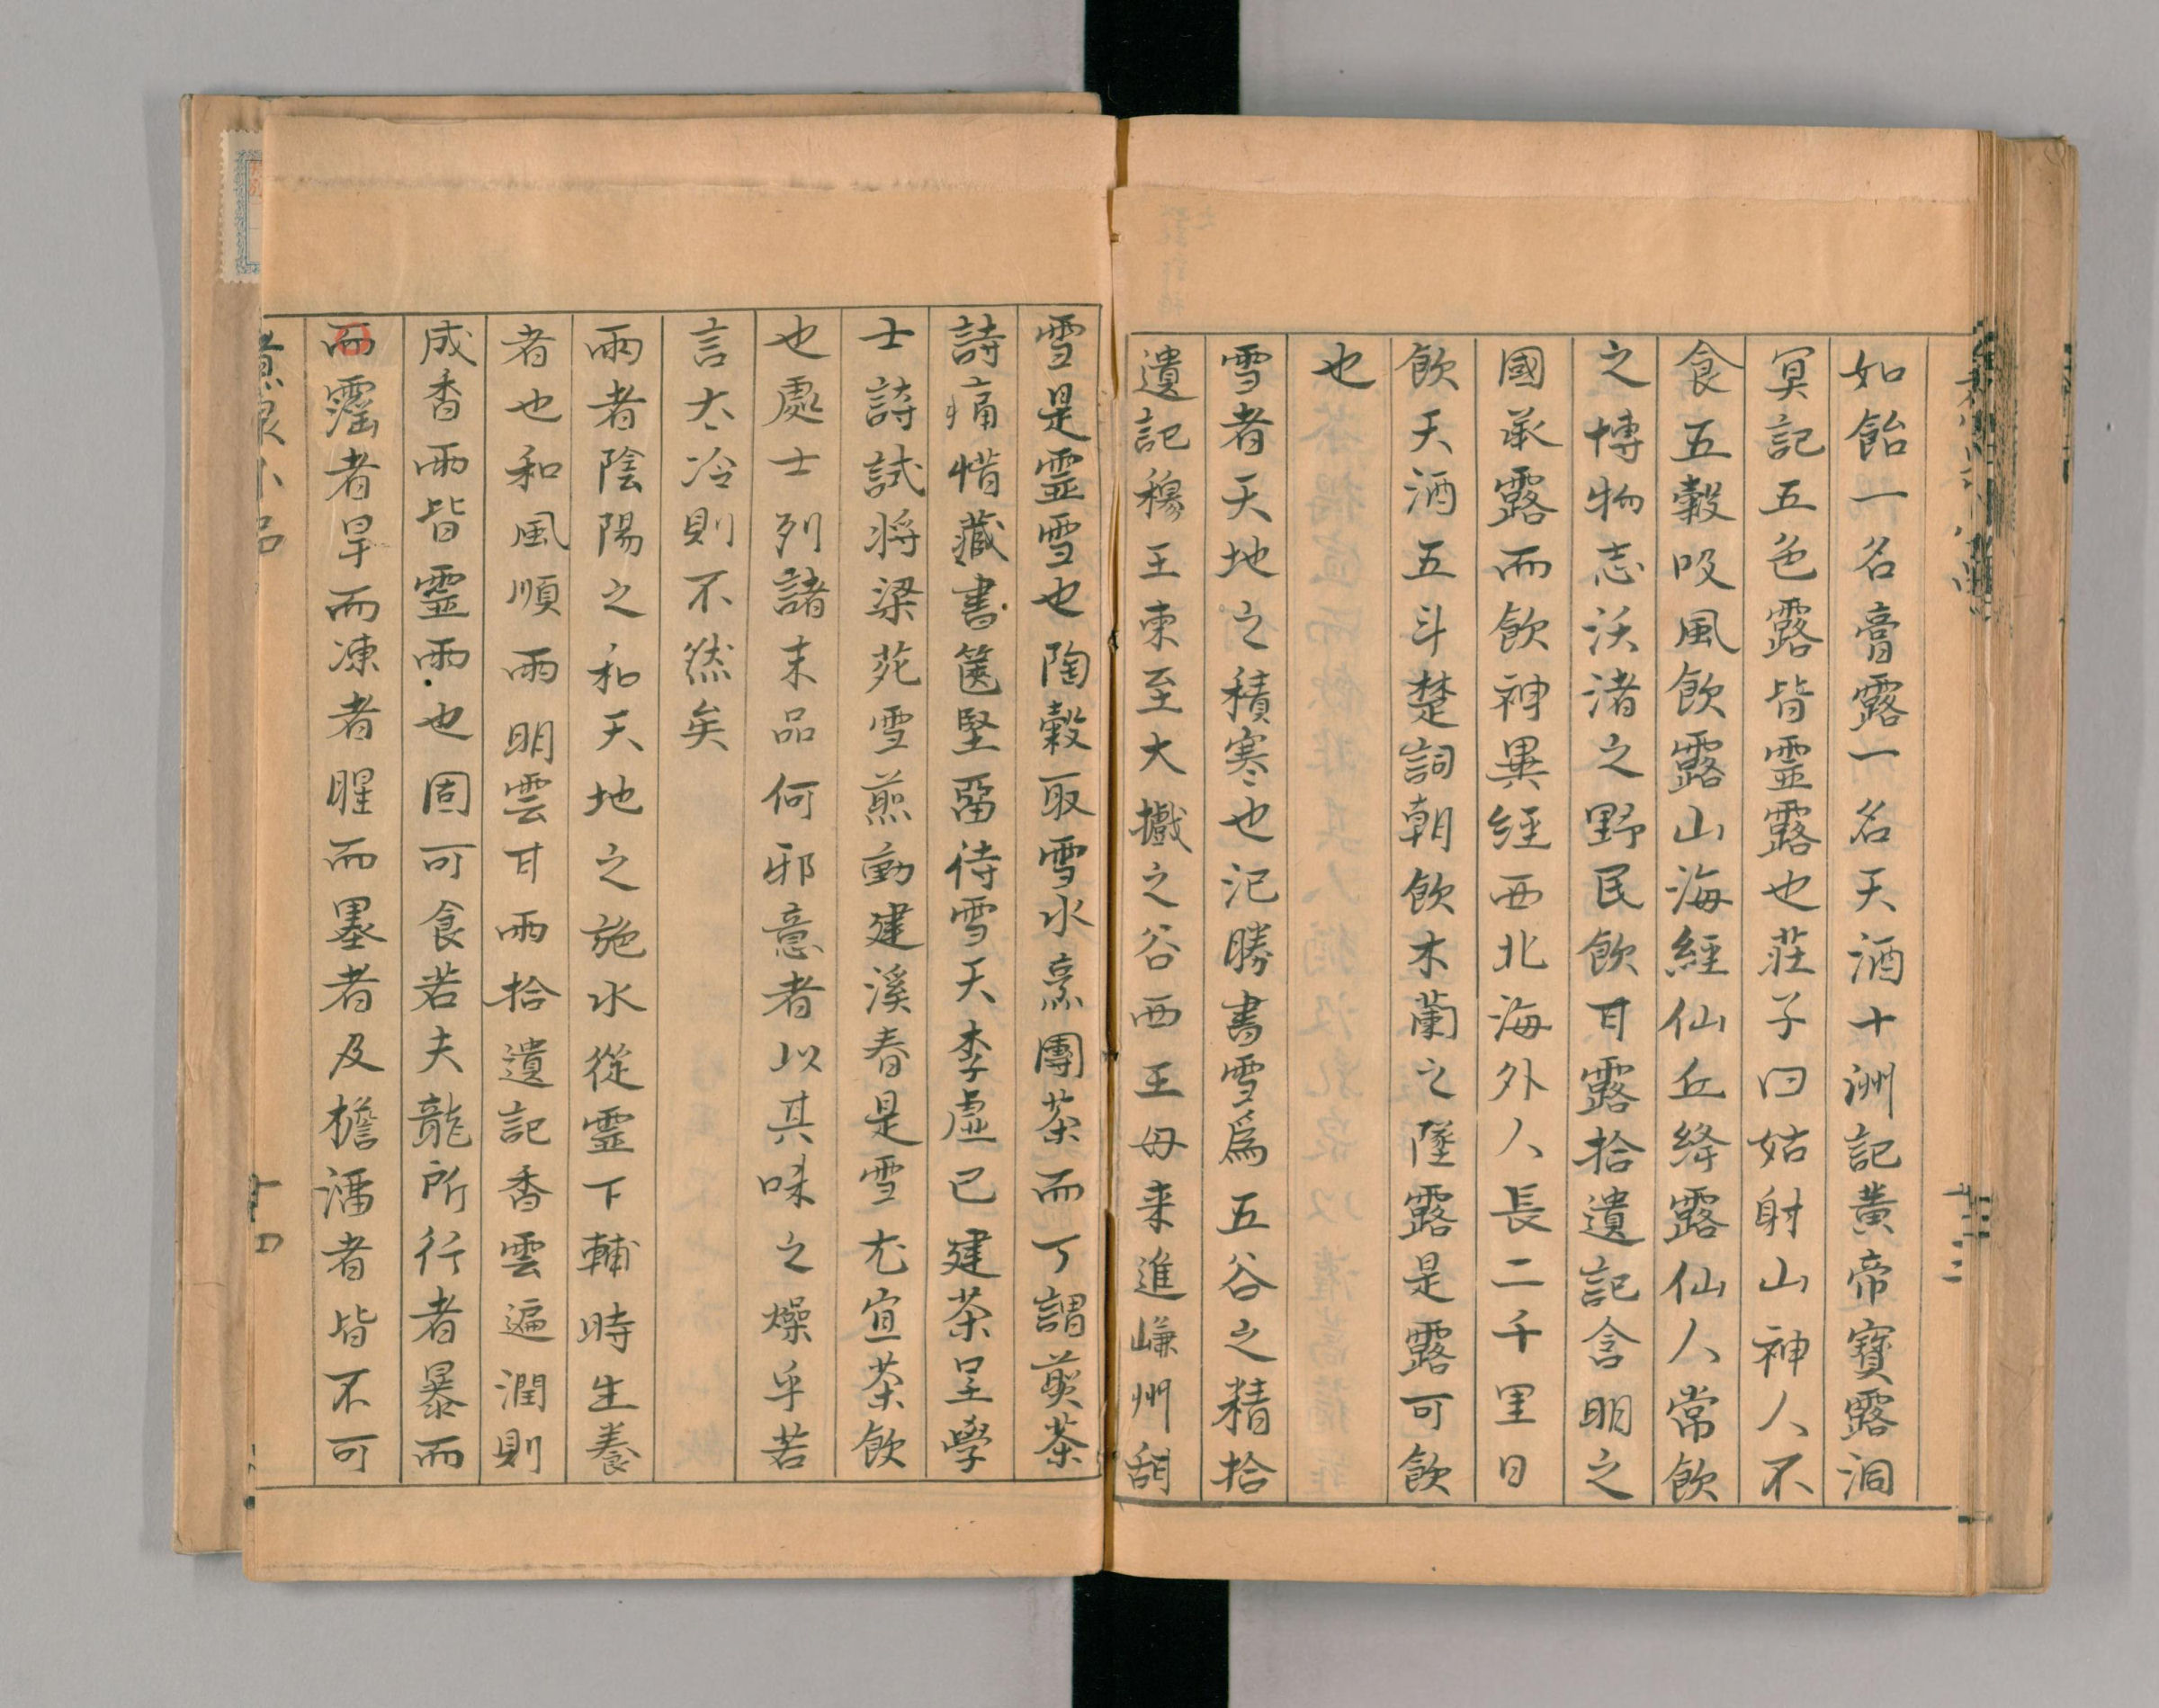 如飴一名膏露一名天酒十洲記黃帝寶露洞
冥記五色露皆霊露也莊子曰姑射山神人不
食五穀吸風飲露山海經仙丘絳露仙人常飲
之博物志沃渚之野民飲甘露拾遺記含明之
國承露而飲神異經西北海外人長二千里日
飲天酒五斗楚詞朝飲木蘭之墜露是露可飲
也
雪者天地之積寒也汜勝書雪爲五谷之精拾
遺記穆王東至大擑之谷西王母来進嵰州甜
雪是霊雪也陶穀取雪水烹團茶而丁謂煎茶
詩痛惜藏書篋堅畱待雪天李虛己建茶呈學
士詩試将梁苑雪煎動建溪春是雪尤宜茶飲
也處士列諸末品何邪意者以其味之燥乎若
言太冷則不然矣
雨者陰陽之和天地之施水從霊下輔時生養
者也和風順雨明雲甘雨拾遺記香雲遍潤則
成香雨皆霊雨也固可食若夫龍所行者暴而
霪者旱而凍者腥而墨者及檐溜者皆不可
煮泉小品
十四